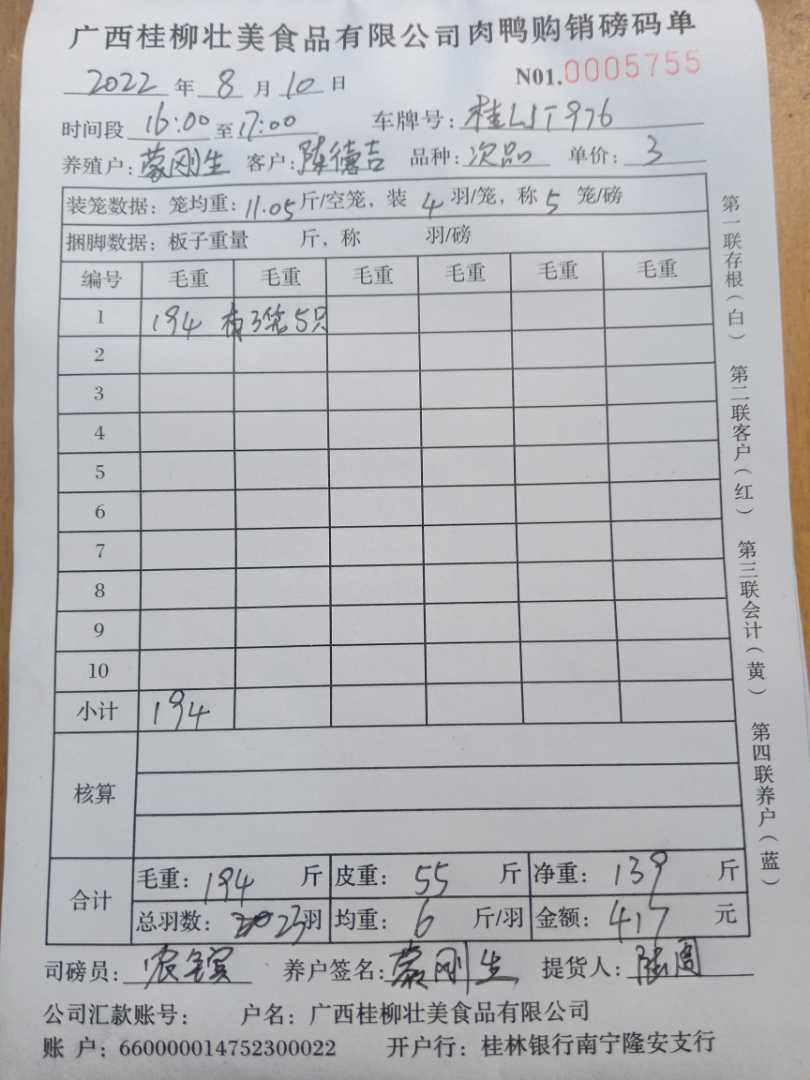 广西桂柳壮美食品有限公司肉鸭购销磅码单
2022 年 8 月 10 日 N01.0005755
时间段 16:00 至 17:00 车牌号: 桂LJT976
养殖户: 蒙刚生 客户: 陈德吉 品种: 次品 单价: 3
装笼数据: 笼均重: 11.05 斤/空笼, 装 4 羽/笼, 称 5 笼/磅
捆脚数据: 板子重量 斤, 称 羽/磅
编号 毛重 毛重 毛重 毛重 毛重 毛重
1 194 5只
2
3
4
5
6
7
8
9
10
小计 194
核算
合计 毛重: 194 斤 皮重: 55 斤 净重: 139 斤
总羽数: 23羽 均重: 6 斤/羽 金额: 417 元
司磅员: 养户签名: 蒙刚生 提货人:
公司汇款账号: 户名: 广西桂柳壮美食品有限公司
账 户: 660000014752300022 开户行: 桂林银行南宁隆安支行
第一联存根(白) 第二联客户(红) 第三联会计(黄) 第四联养户(蓝)